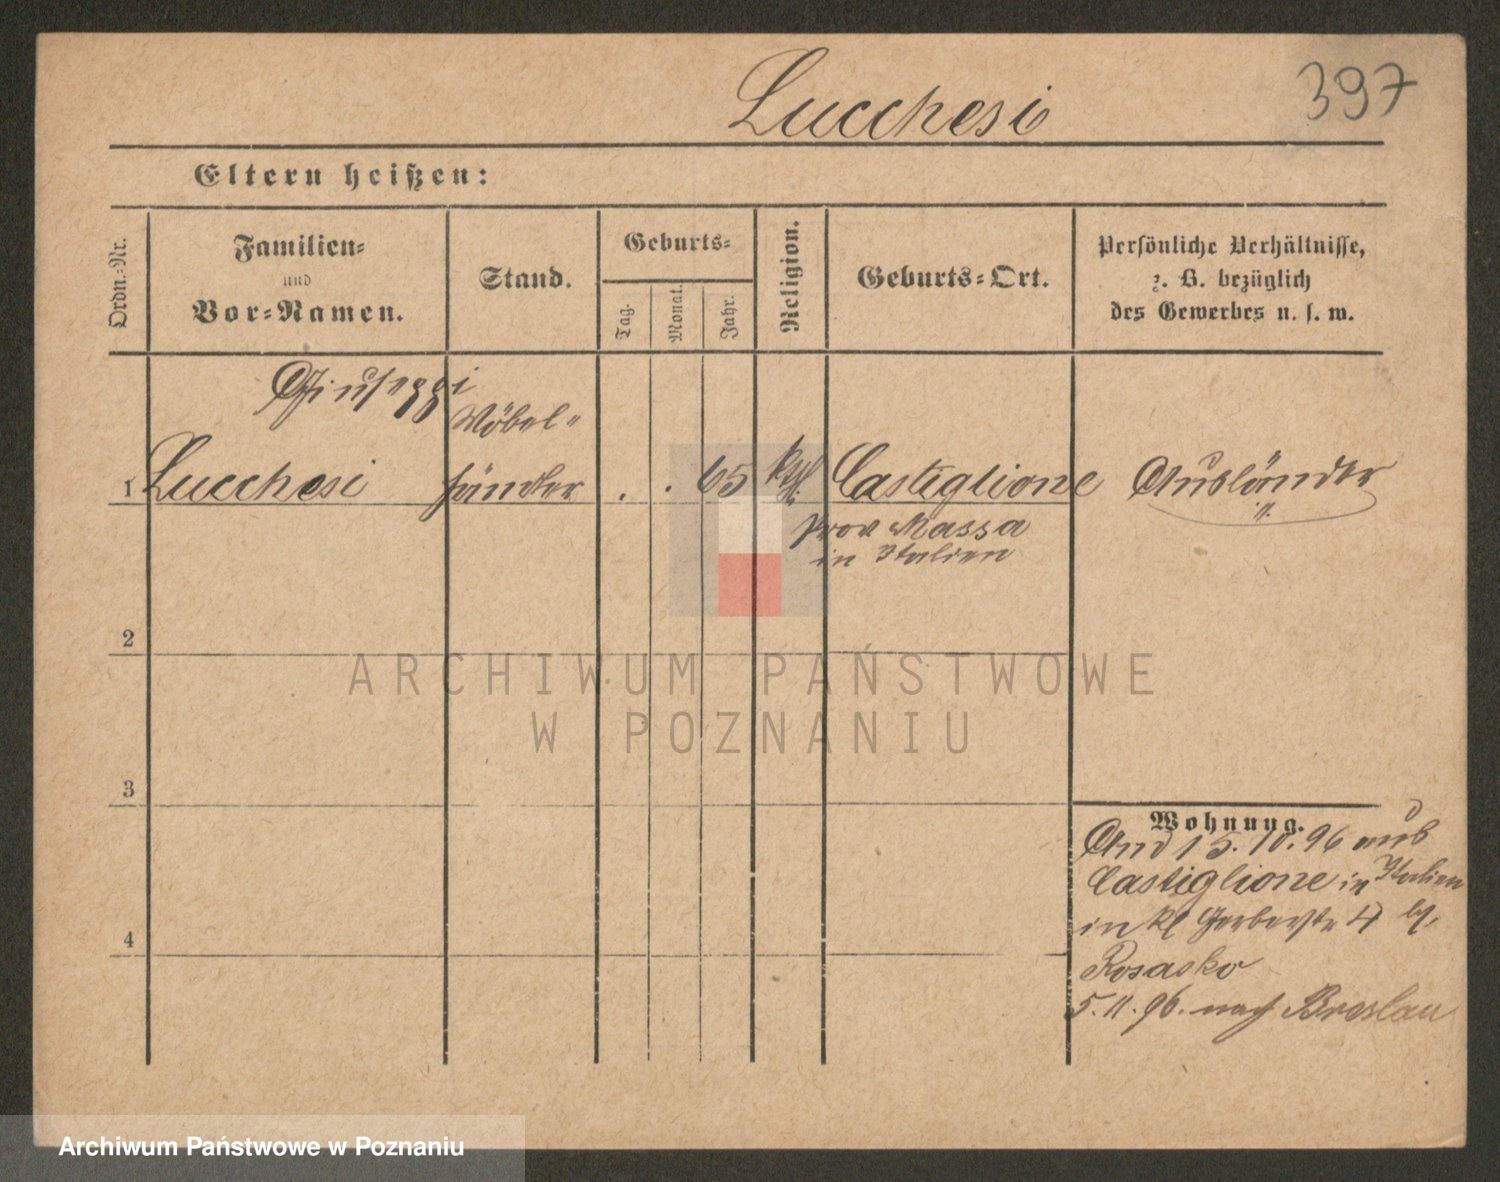 Lucchesi
397
Eltern heißen:
Ordn.-Nr.
Familien-
und
Vor-Namen.
Stand.
Geburts-
Tag.
Monat.
Jahr.
Religion.
Geburts-Ort.
Persönliche Verhältnisse,
z. B. bezüglich
des Gewerbes u. s. w.
Giuseppi
Möbel-
1 Lucchesi händler . . 65 kth. Castiglione Ausländer
prov Massa
in Italien
2
3
4
Wohnung.
15.10.96 aus
Castiglione in Italien
in kl Gerberstr 4
Rosasko
5.11.96. nach Breslau
ARCHIWUM PAŃSTWOWE
W POZNANIU
Archiwum Państwowe w Poznaniu